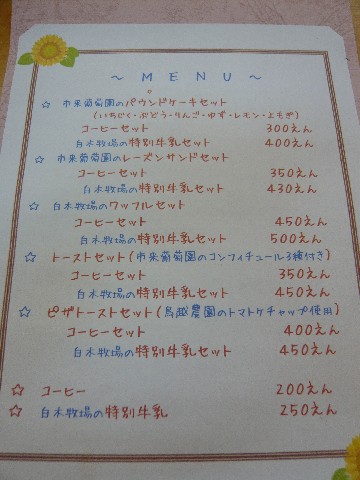 ～ MENU ～
☆ 市来葡萄園のパウンドケーキセット
(いちじく・ぶどう・りんご・ゆず・レモン・よもぎ)
コーヒーセット 300えん
白木牧場の特別牛乳セット 400えん
☆ 市来葡萄園のレーズンサンドセット
コーヒーセット 350えん
白木牧場の特別牛乳セット 430えん
☆ 白木牧場のワッフルセット
コーヒーセット 450えん
白木牧場の特別牛乳セット 500えん
☆ トーストセット(市来葡萄園のコンフィチュール3種付き)
コーヒーセット 350えん
白木牧場の特別牛乳セット 450えん
☆ ピザトーストセット(鳥越農園のトマトケチャップ使用)
コーヒーセット 400えん
白木牧場の特別牛乳セット 450えん
☆ コーヒー 200えん
☆ 白木牧場の特別牛乳 250えん